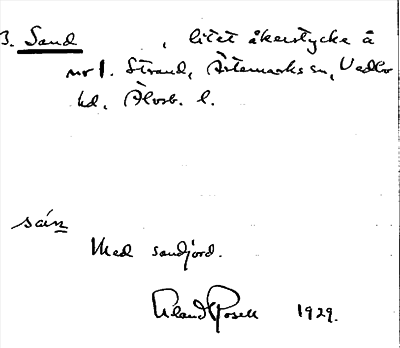 3. Sand , litet åkerstycke å
nr 1. Strand, Ärtemarks sn, Vedbo
hd, Älvsb. l.
sán
Med sandjord.
Roland Rosell 1929.